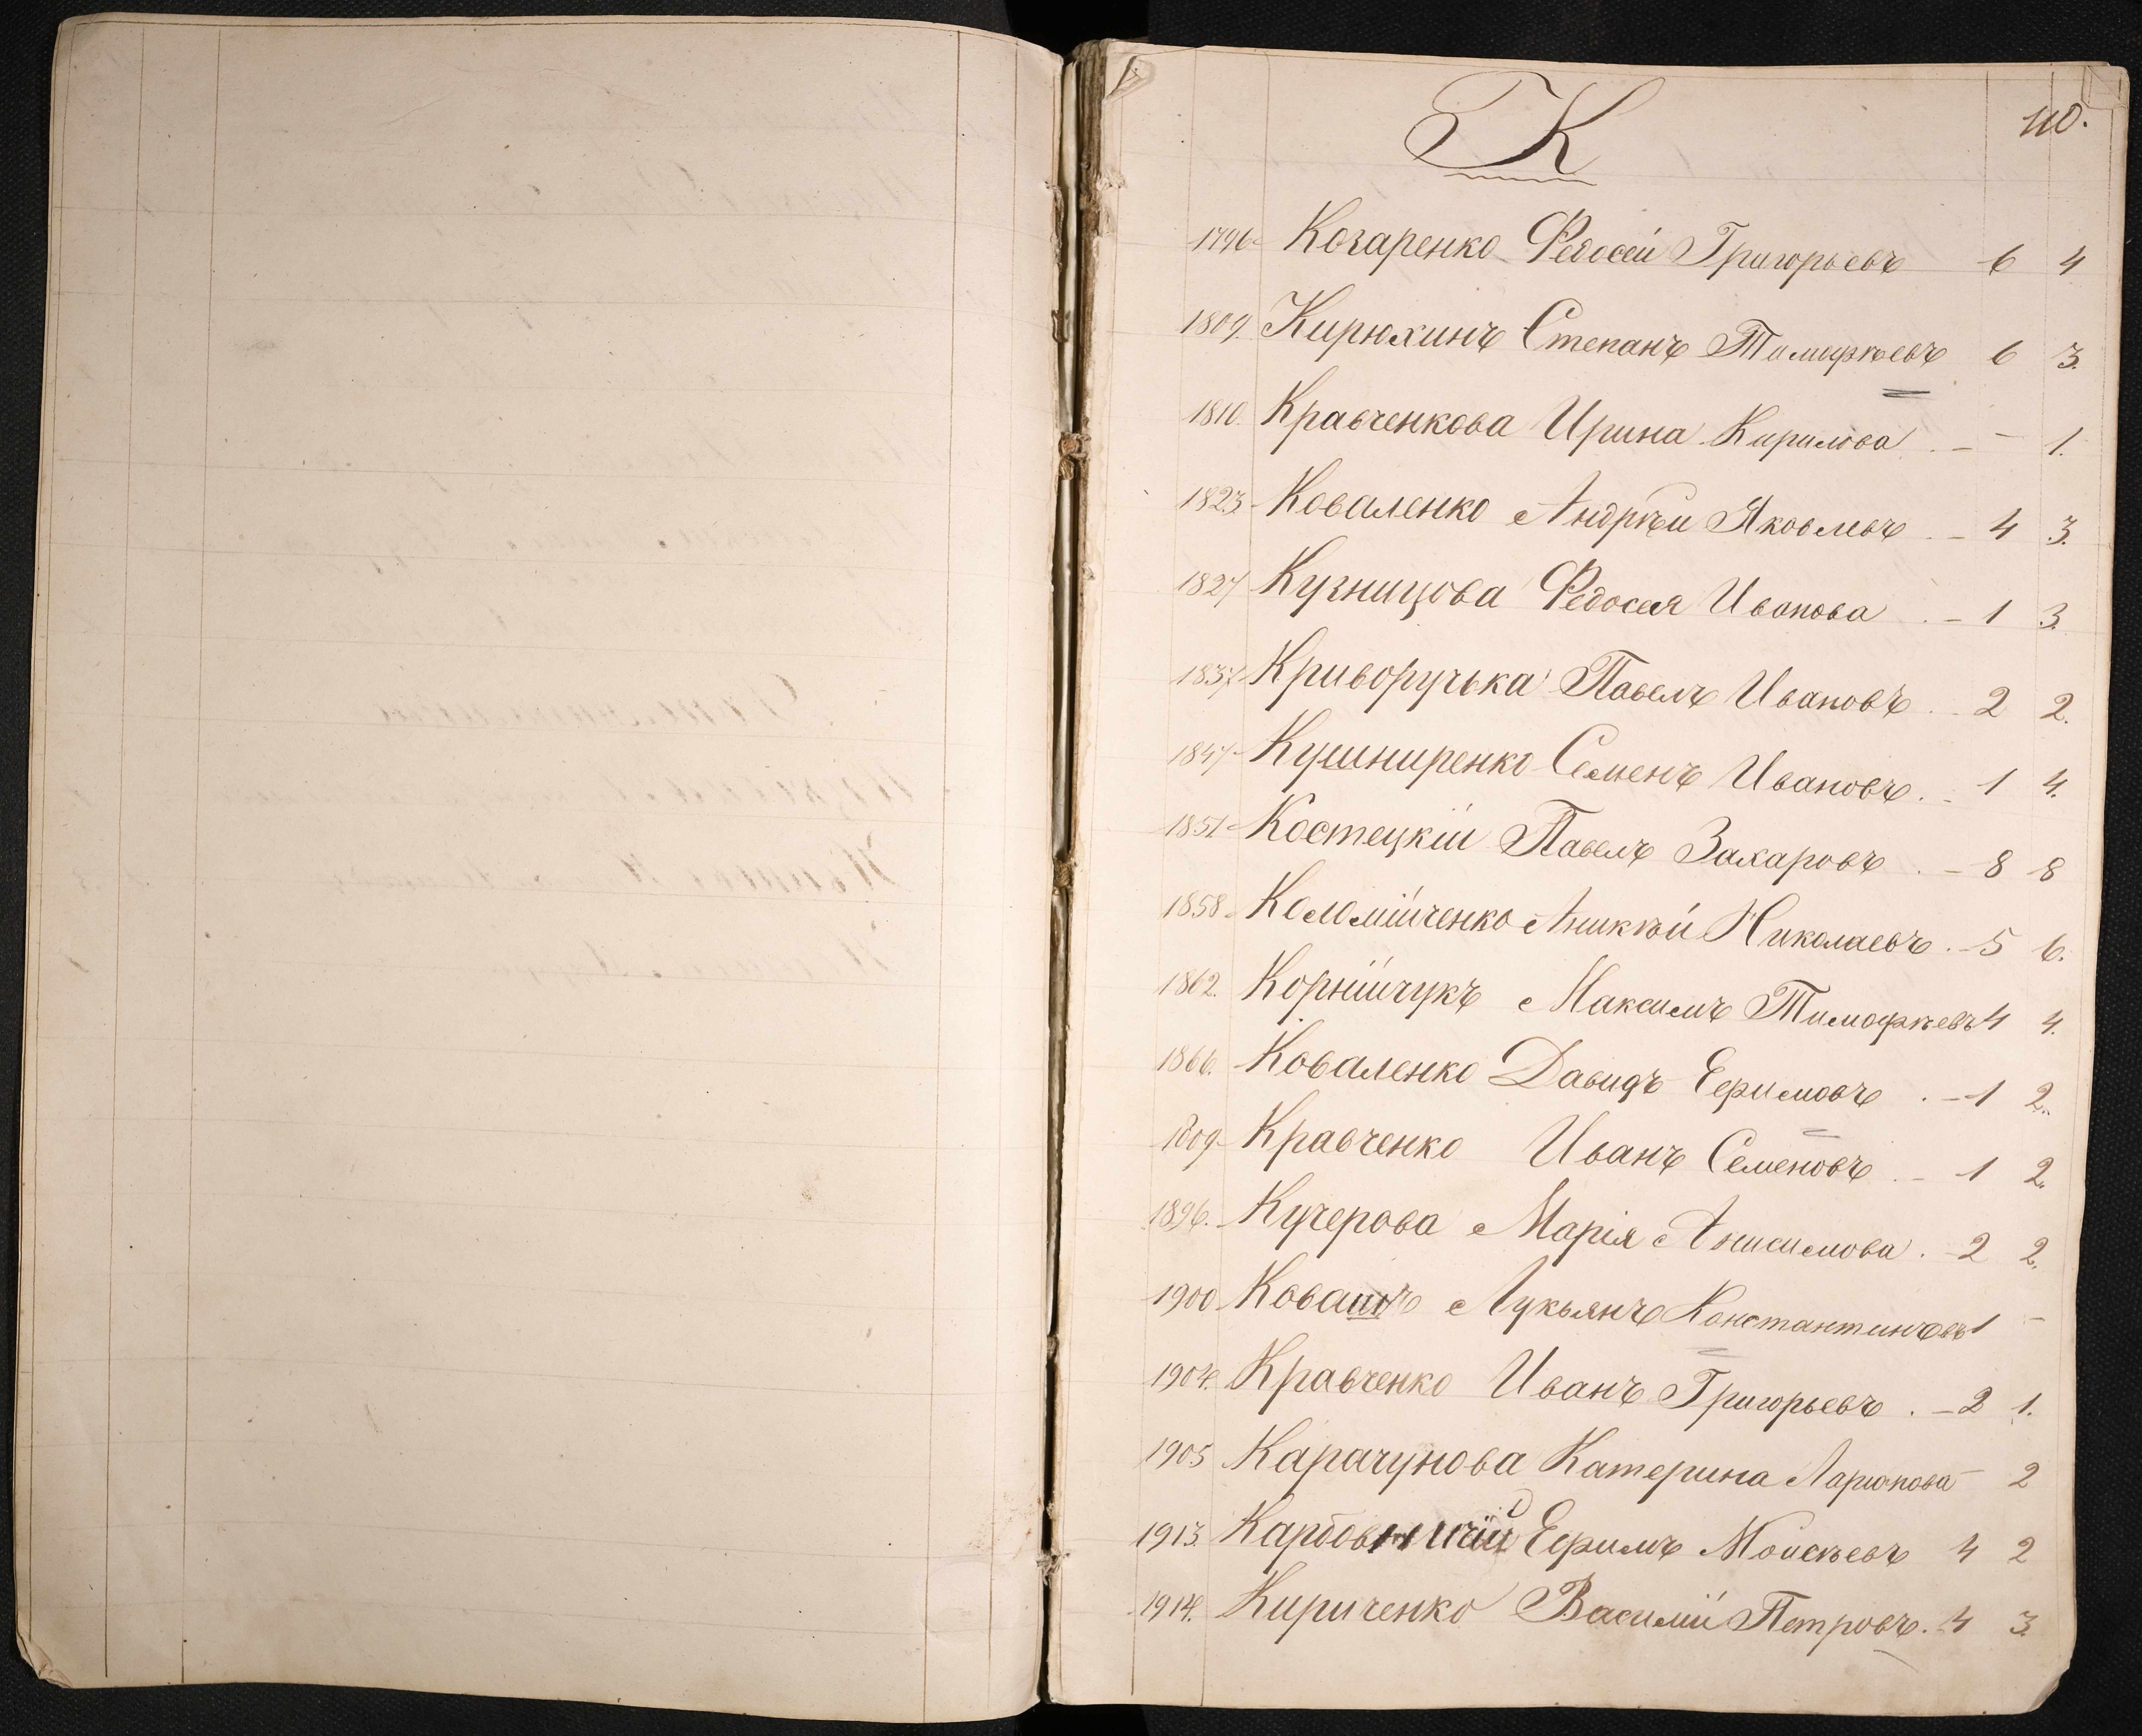 110.
К
1796 Козаренко Федосей Григорьевъ 6 4
1809. Кирюхинъ Степанъ Тимофѣевъ 6 3.
1810. Кравченкова Ирина Кирилова . – – 1.
1823 Коваленко Андрѣй Яковлевъ . – 4 3.
1827 Кузницова Федосея Иванова . – 1 3.
1837 Криворучька Павелъ Ивановъ . – 2 2.
1847 Кушниренко Семенъ Ивановъ . – 1 4.
1851 Костецкій Павелъ Захаровъ . – 8 8
1858 Коломійченко Аникѣй Николаевъ . – 5 6.
1862. Корнійчукъ Максимъ Тимофѣевъ 4 4.
1866. Коваленко Давидъ Ефимовъ . – 1 2.
Кравченко Иванъ Семеновъ . – 1 2.
1896. Кучерова Марія Анисимова . – 2 2.
1900 Лукьянъ Константиновъ 1 –
1904. Кравченко Иванъ Григорьевъ . – 2 1.
1905 Карачунова Катерина Ларіонова – 2
1913. Ефимъ Моисѣевъ 4 2
1914. Кириченко Василій Петровъ . 4 3.